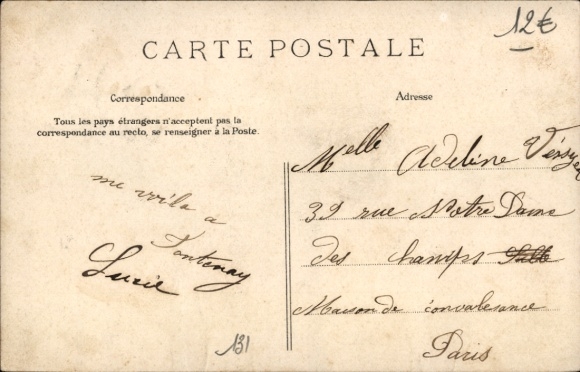 12€
CARTE POSTALE
Correspondance
Adresse
Tous les pays étrangers n'acceptent pas la
correspondance au recto, se renseigner à la Poste.
me voila a
Fontenay
Lucie
Melle Adeline
39 rue Notre Dame
des champs
Maison de convalesance
Paris
131